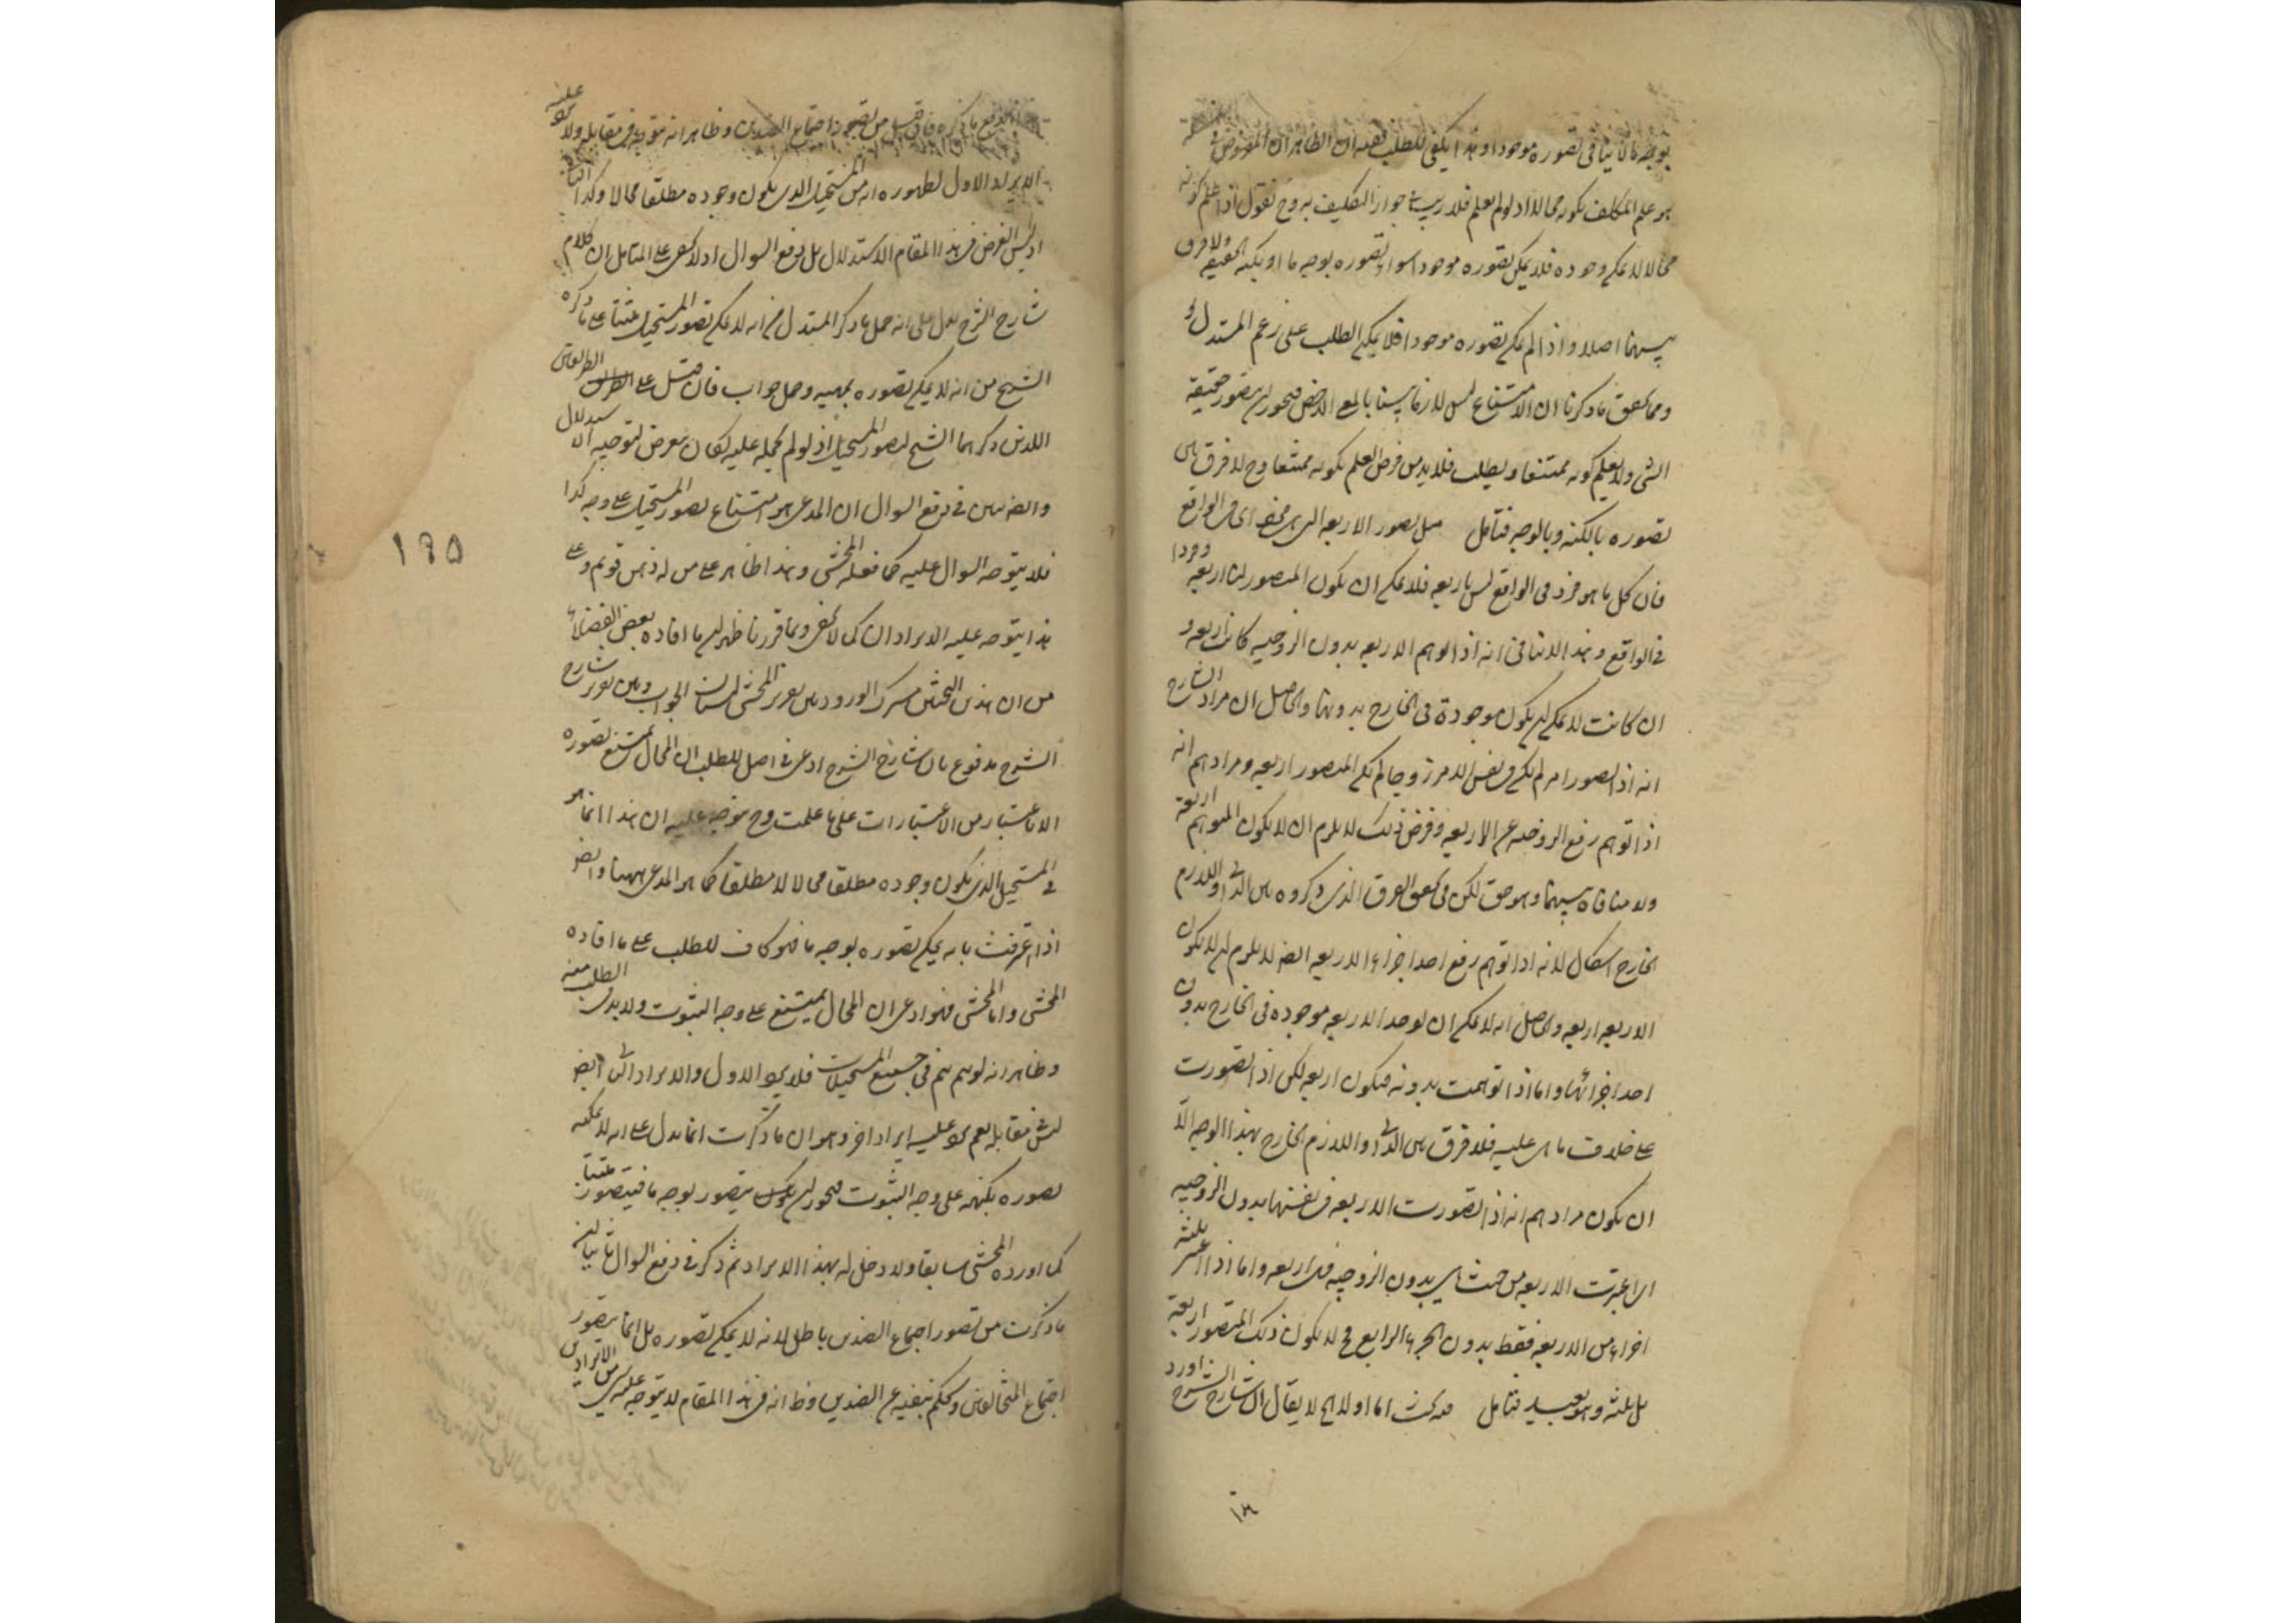 بوجه ما لا ينافي تصوره موجودا وهذا يكفي للطلب ففيه ان الظاهر ان المفروض
هو علم المكلف بكونه محالا اذ لو لم يعلم فلا ريب في جواز التكليف به وح نقول اذا علم كونه
محالا لا يمكن وجوده فلا يمكن تصوره موجودا سواء تصوره بوجه ما او بكنه الحقيقة ولا فرق
بينهما اصلا واذا لم يمكن تصوره موجودا فلا يمكن الطلب على زعم المستدل
ومما يحقق ما ذكرنا ان الامتناع ليس لازما بينا بالمعنى الاخص فيجوز ان يتصور حقيقة
الشي ولا يعلم كونه ممتنعا ويطلب فلا بد من فرض العلم بكونه ممتنعا وح لا فرق بين
تصوره بالكنه وبالوجه فتامل مثل تصور الاربعة التي في الواقع
فان كل ما هو فرد في الواقع ليس باربعة فلا يمكن ان يكون المتصور اربعة
في الواقع وهذا لا ينافي انه اذا توهم الاربعة بدون الزوجية كانت اربعة و
ان كانت لا يمكن ان يكون موجودة في الخارج بدونها والحاصل ان مراد الشارح
انه اذا تصور امر لم يكن في نفس الامر زوجا لم يكن المتصور اربعة ومرادهم انه
اذا توهم رفع الزوجية عن الاربعة وفرض ذلك لا يلزم ان لا يكون المتوهم اربعة
ولا منافاة بينهما وهو حق لكن في تحقق الفرق الذي ذكروه بين الذاتي واللازم
الخارج اشكال لانه اذا توهم رفع احد اجزاء الاربعة ايضا لا يلزم ان لا يكون
الاربعة اربعة والحاصل انه لا يمكن ان يوجد الاربعة موجودة في الخارج بدون
احد اجزائها واما اذا توهمت بدونه فيكون اربعة لكن اذا تصورت
على خلاف ما هي عليه فلا فرق بين الذاتي واللازم الخارج بهذا الوجه الا
ان يكون مرادهم انه اذا تصورت الاربعة في نفسها بدون الزوجية
اي اعتبرت الاربعة من حيث هي بدون الزوجية فهي اربعة واما اذا اعتبر ثلثة
اجزاء من الاربعة فقط بدون الجزء الرابع فح لا يكون ذلك المتصور اربعة
بل ثلثة وهو بعيد فتامل اما اولا الخ لا يقال ان شارح الشرح اورد
ما ذكره من تصور اجتماع الضدين وظاهر انه متوجه في مقابله ولا يرد عليه
الايراد الاول لظهوره انه من المستحيل الذي يكون وجوده مطلقا محالا وكذا
اذ ليس الغرض في هذا المقام الاستدلال بل دفع السوال اذ لا يخفى على المتامل ان كلام
شارح الشرح يدل على انه حمل ما ذكر المستدل من انه لا يمكن تصور المستحيل مثبتا على ما ذكره
الشيخ من انه لا يمكن تصوره بمهيته وحمل جواب على الطريقين
اللذين ذكرهما الشيخ لتصور المستحيل اذ لو لم يحمله عليه لكان تعرض لتوجيه الاستدلال
وايضا بين في دفع السوال ان المدعى هو امتناع تصور المستحيل على وجه كذا
فلا يتوجه السوال عليه كما فعله المحشي وهذا ظاهر على من له ذهن قويم وعلى
هذا يتوجه عليه الايرادان كما لا يخفى وبما قررنا ظهر ان ما افاده بعض الفضلاء
من ان هذين البحثين مشترك الورود بين تقرير المحشي الجواب وبين تقرير شارح
الشرح مدفوع بان شارح الشرح ادعى في اصل المطلب ان المحال يمتنع تصوره
الا باعتبار من الاعتبارات على ما علمت وح يتوجه عليه ان هذا انما هو
في المستحيل الذي يكون وجوده مطلقا محالا لا مطلقا كما هو المدعى ههنا وايضا
اذا اعترفت بانه يمكن تصوره بوجه ما فهو كاف للطلب على ما افاده
المحشي واما المحشي فهو ادعى ان المحال يمتنع على وجه الثبوت ولا بد في الطلب منه
وظاهر انه لو تم تم في جميع المستحيلات فلا يرد الاول والايراد الثاني ايضا
ليس مقابله نعم يرد عليه ايراد اخر وهو ان ما ذكرت انما يدل على انه لا يمكن
تصوره بكنهه على وجه الثبوت فيجوز ان يتصور بوجه ما فيتصور مثبتا
كما اورده المحشي سابقا ولا دخل له بهذا الايراد ثم ذكر في دفع السوال ثانيا ان
ما ذكرت من تصور اجتماع الضدين باطل لانه لا يمكن تصوره بل انما يتصور
اجتماع المتخالفين ويحكم بنفيه عن الضدين وظ انه في هذا المقام لا يتوجه عليه شي من الايرادين
١٩٥